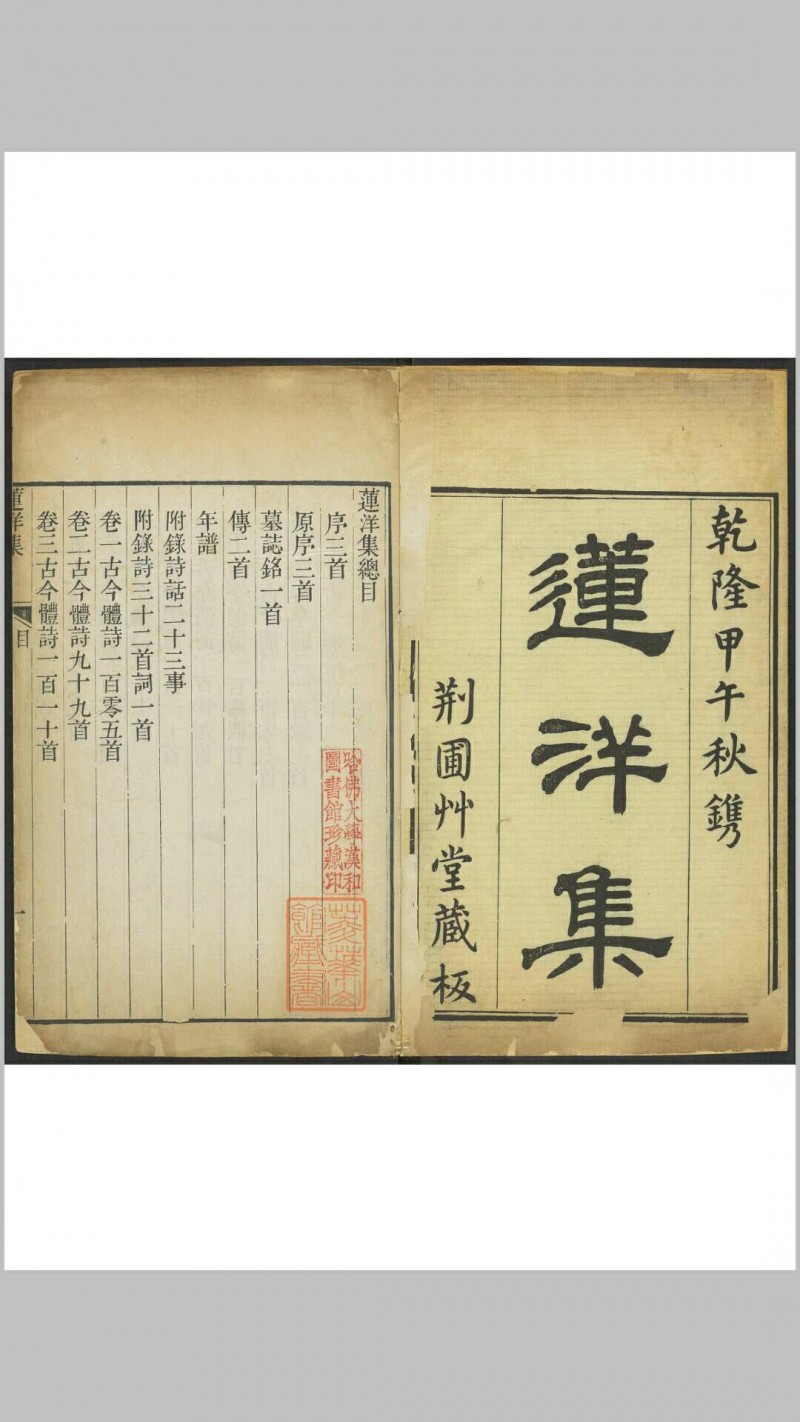 乾隆甲午秋鐫
蓮洋集
荆圃艸堂蔵板
蓮洋集總目
序三首
原序三首
墓誌銘一首
傳二首
年譜
附錄詩話二十三事
附錄詩三十二首詞一首
卷一古今體詩一百零五首
卷二古今體詩九十九首
卷三古今體詩一百一十首
蓮洋集
目
一
哈佛大學漢和
圖書館珍藏印